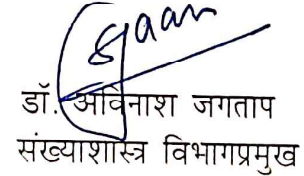 डॉ. अविनाश जगताप
संख्याशास्त्र विभागप्रमुख